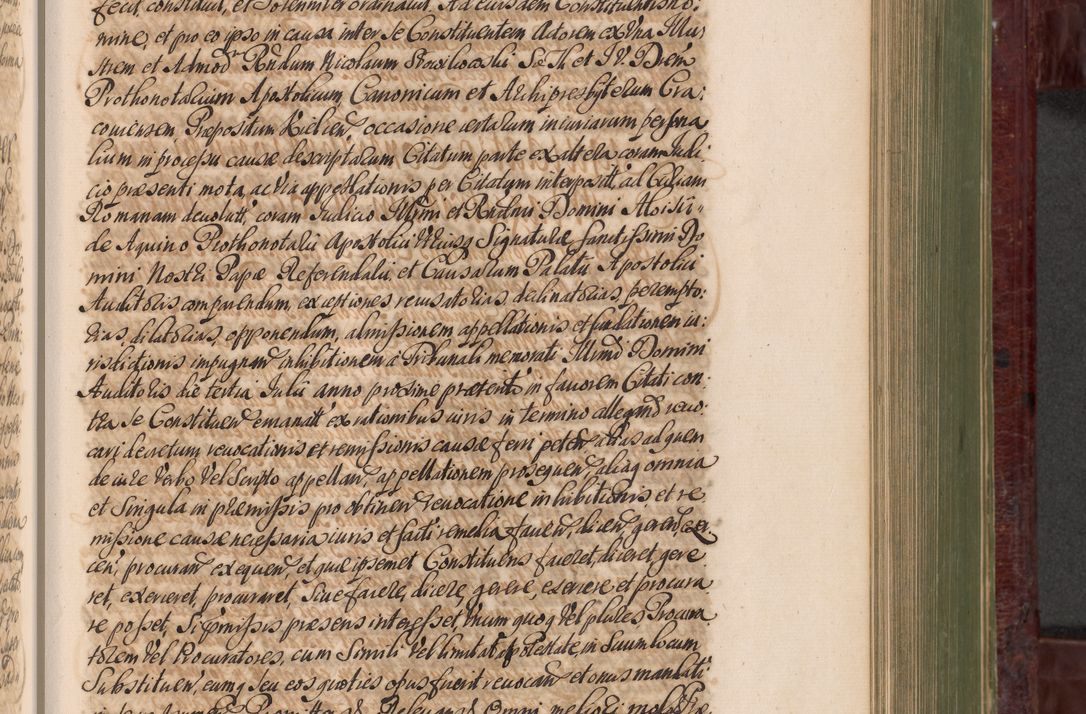 fecit, constituit, et Solenniter ordinavit. Ad eiusdem Constituentis no:
mine, et pro eo ipso in causa inter Se Constituentem Actorem ex Una Illus
trem et Admod Rndum Nicolaum
Prothonotarium Apostolicum Canonicum et Archipresbyterum Cra:
coviensem, Præpositum Kielcen, occasione certarum iniuriarum persona
lium in processu causæ descriptarum Citatum parte ex altera coram Judi:
cio præsenti mota, ac via appellationis per Citatum interposit, ad Curiam
Romanam devolut, coram Judicio Illmi et Rndmi Domini Aloisii
de Aquino Prothonotarii Apostolici Utriusq Signaturæ Sanctissimi Do
mini Nostri Papæ Referendarii, et Causarum Palatii Apostolici
Auditoris comparendum, exceptiones recusatorias, declinatorias, perempto:
rias, dilatorias, opponendum, admissionem appellationis et fundationem iu:
risdictionis impugnan inhibitionem à Tribunali memorati Illmi Domini
Auditoris die tertia Julii anno proxime præterit in favorem Citati con:
tra Se Constituen emanat ex rationibus iuris in termino allegand revo:
cari decretum revocationis et remissionis causæ ferri peten, alias ad quem
de iure Verbo Vel Scripto appellan, appellationem prosequen, aliaq omnia
et Singula in præmissis pro obtinen revocatione inhibitionis, et re
missione causæ necessaria iuris et facti remedia facien, dicen, geren, exer
cen, procuran exequen, et quæ ipsemet Constituens faceret, diceret, gere
ret, exerceret, procuraret, Sive facere, dicere, gerere, exercere et procura
re posset, Si præmissis præsens interesset, Unum quoq Vel plures Procura
torem Vel Procuratores, cum Simili Vel limitata potestate, in Suum locum
Substituen, eumq Seu eos quoties opus fuerit revocan et onus mandati